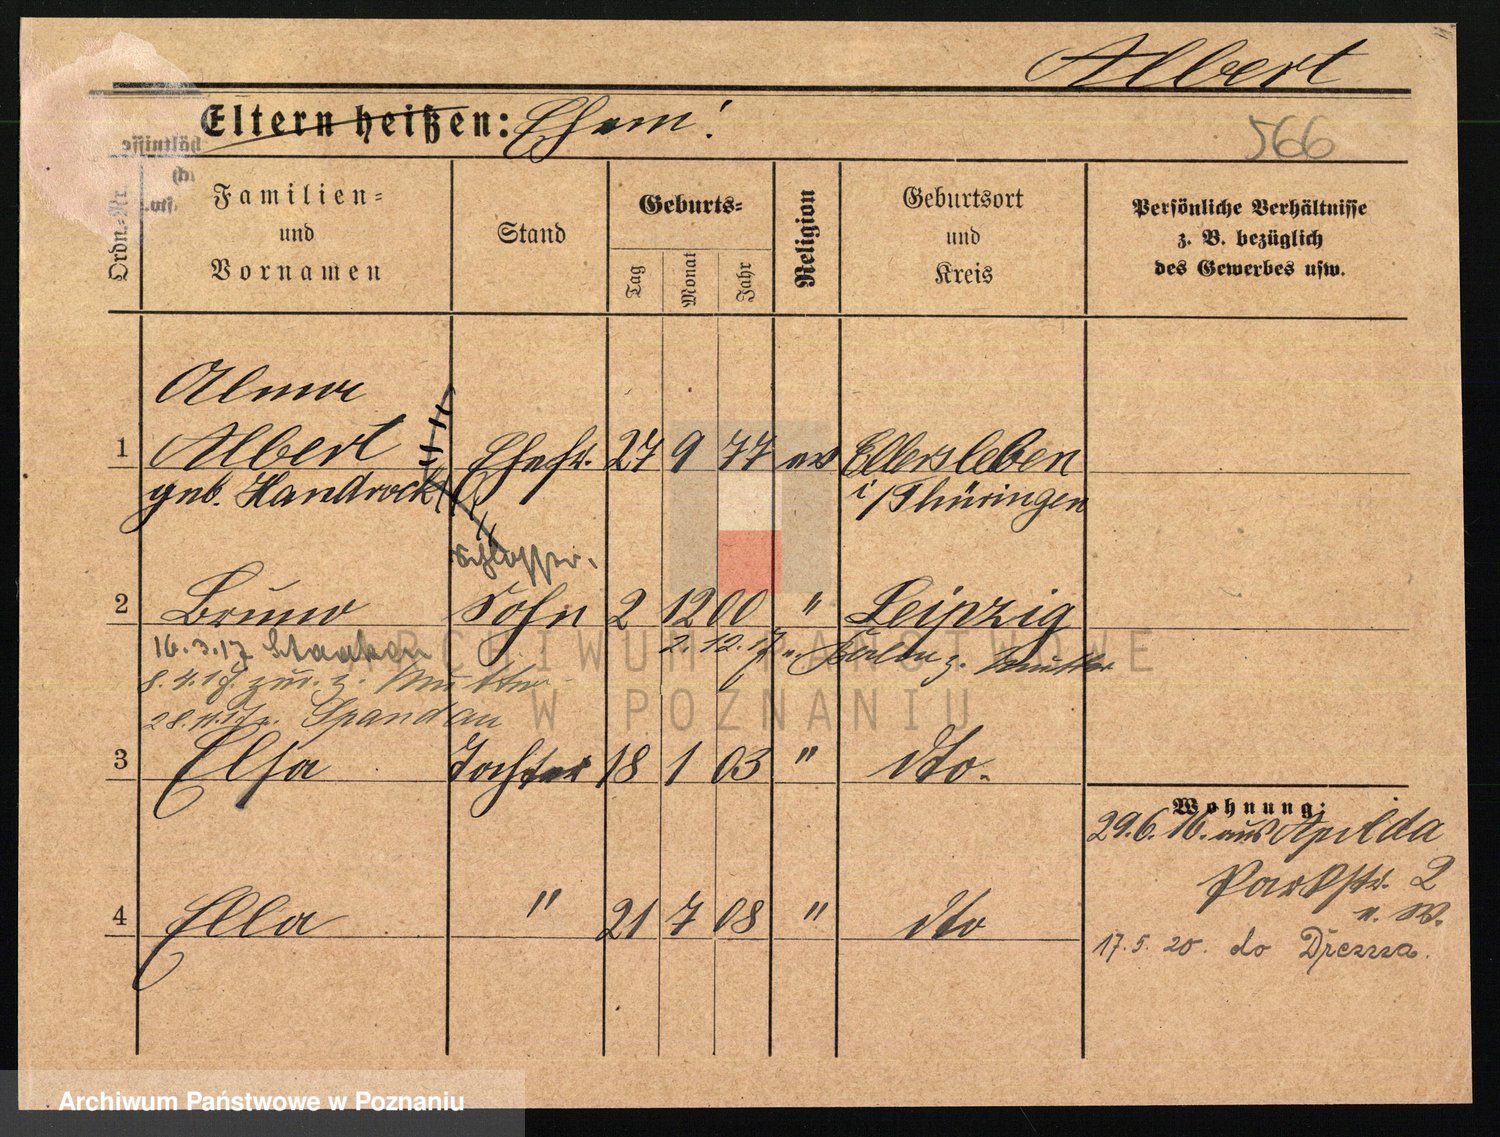 Albert
Eltern heißen: Ehem!
566
Ordn.-Nr
Familien-
und
Vornamen
Stand
Geburts-
Tag
Monat
Jahr
Religion
Geburtsort
und
Kreis
Persönliche Verhältnisse
z. B. bezüglich
des Gewerbes usw.
Alma
1 Albert Ehefr. 27 9 77 ev Ellersleben
geb. Handrock i/Thüringen
Schlosser.
2 Bruno Sohn 2 12 00 " Leipzig
16.3.17 Staaken 2.12.17 n. Berlin z. Mutter
8.4.17 zur. z. Mutter
28.4.17. Spandau
3 Elsa Tochter 18 1 03 " dto.
Wohnung:
29.6.16. aus Apolda
Parkstr. 2
4 Ella " 21 7 08 " dto
17.5.20. do Drezna.
ARCHIWUM PAŃSTWOWE
W POZNANIU
Archiwum Państwowe w Poznaniu